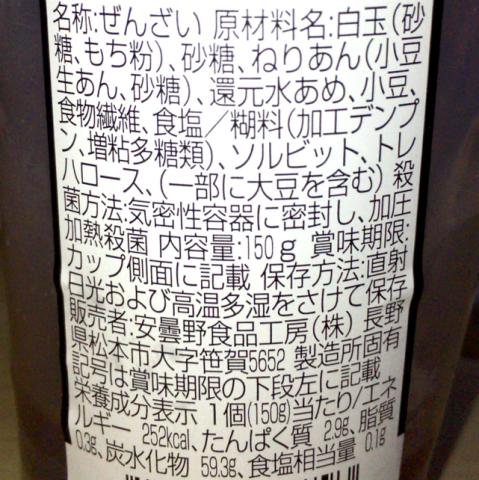 名称:ぜんざい 原材料名:白玉(砂
糖、もち粉)、砂糖、ねりあん(小豆
生あん、砂糖)、還元水あめ、小豆、
食物繊維、食塩/糊料(加工デンプ
ン、増粘多糖類)、ソルビット、トレ
ハロース、(一部に大豆を含む) 殺
菌方法:気密性容器に密封し、加圧
加熱殺菌 内容量:150g 賞味期限:
カップ側面に記載 保存方法:直射
日光および高温多湿をさけて保存
販売者:安曇野食品工房(株) 長野
県松本市大字笹賀5652 製造所固有
記号は賞味期限の下段左に記載
栄養成分表示 1個(150g)当たり/エネ
ルギー 252kcal、たんぱく質 2.9g、脂質
0.3g、炭水化物 59.3g、食塩相当量 0.1g